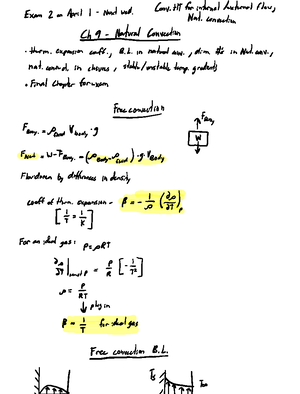 Exam 2 on April 1 - Next wed.
Conv. HT for internal/external flow,
Nat. convection
Ch 9 - Natural Convection
· therm. expansion coeff., B.L. in natural conv., dim #s in Nat. conv.,
nat. convect. in , stable/unstable temp. gradients
· Final chapter for exam
Free convection
F_Buoy. = ρ_fluid V_body · g
F_Buoy
W
F_Net = W - F_Buoy. = (ρ_Body - ρ_fluid) · g · V_Body
Flow driven by differences in density
coeff of therm. expansion - β = -1/ρ (∂ρ/∂T)_P
[1/T = 1/K]
For an ideal gas: P = ρRT
∂ρ/∂T|const P = P/R [-1/T²]
ρ = P/RT
↓ plug in
β = 1/T for ideal gas
Free convection B.L.
T_s
T∞